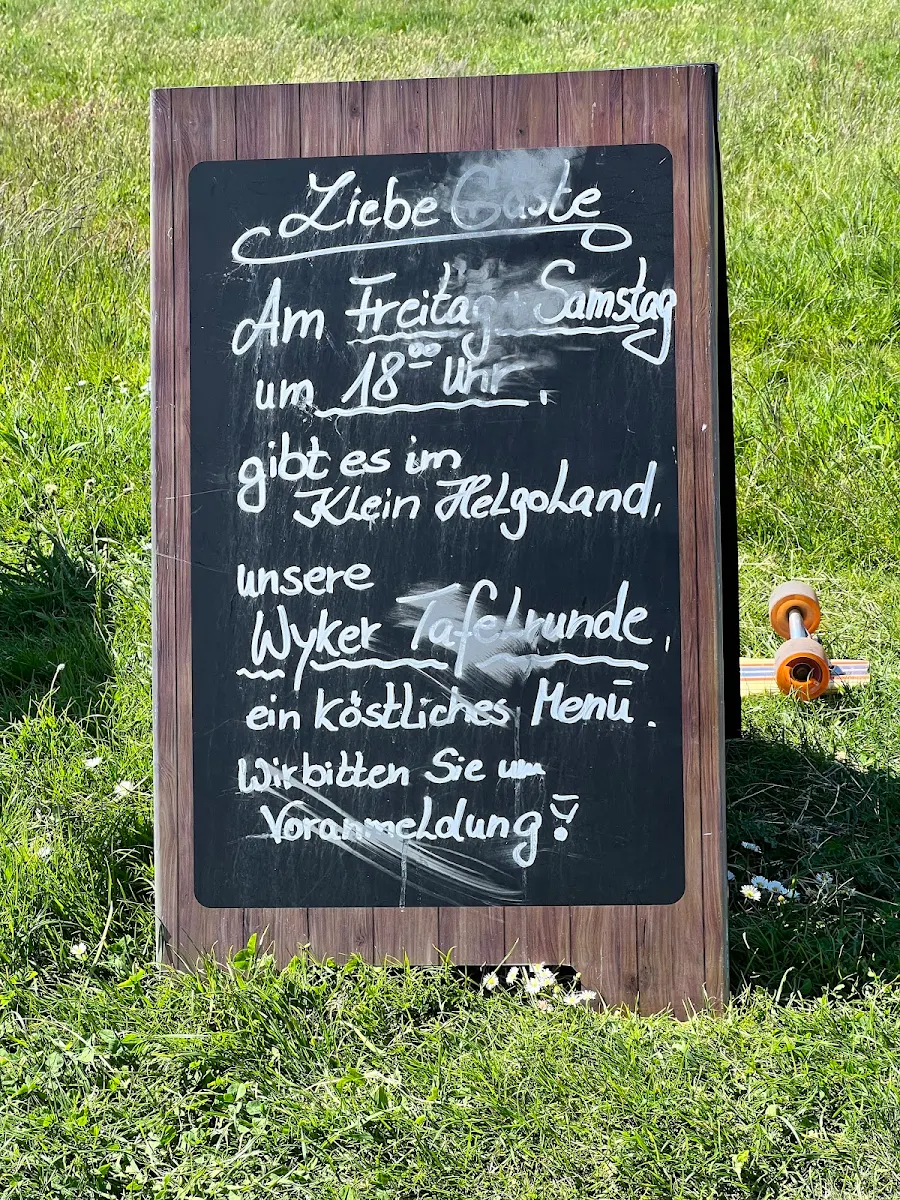 Liebe Gäste
Am Freitag, Samstag
um 18⁰⁰ Uhr,
gibt es im
Klein Helgoland,
unsere
Wyker Tafelrunde,
ein köstliches Menü.
Wir bitten Sie um
Voranmeldung!